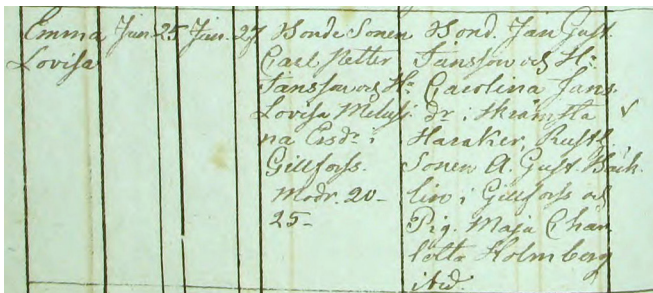 Emma
Lovisa
Jun. 25
Jun. 27
Bonde Sonen
Carl Petter
Jansson och H:
Lovisa Melusi
na Ersdr i
Gillforss.
Modr. 20-
25-
Bond. Jan Gust.
Jansson och H:
Carolina Jans
dr i Skrämsta
Haraker, Rusth.
Sonen A. Gust. Bäck
lin i Gillforss och
Pig. Maja Char
lotta Holmberg
ibid.